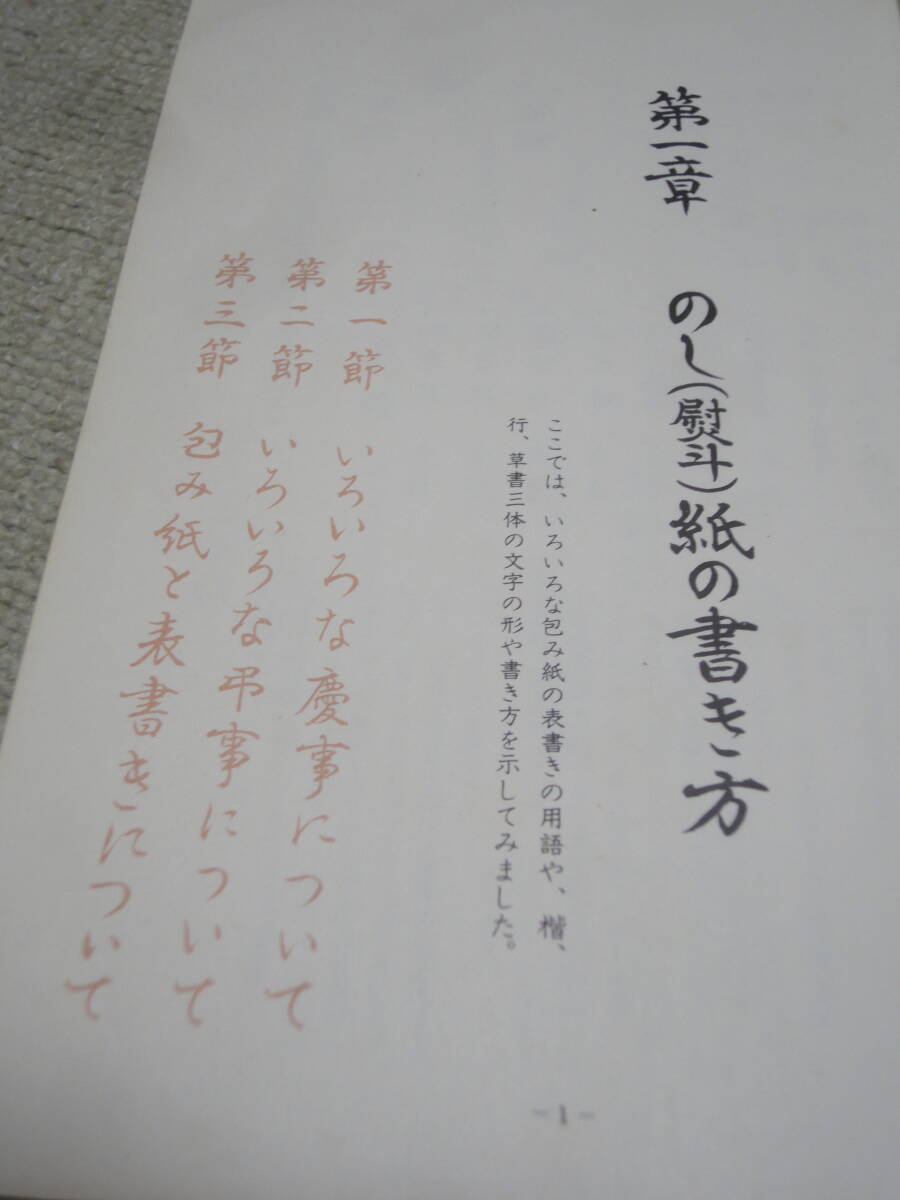 第一章 のし(熨斗)紙の書き方
ここでは、いろいろな包み紙の表書きの用語や、楷、
行、草書三体の文字の形や書き方を示してみました。
第一節 いろいろな慶事について
第二節 いろいろな弔事について
第三節 包み紙と表書きについて
-1-